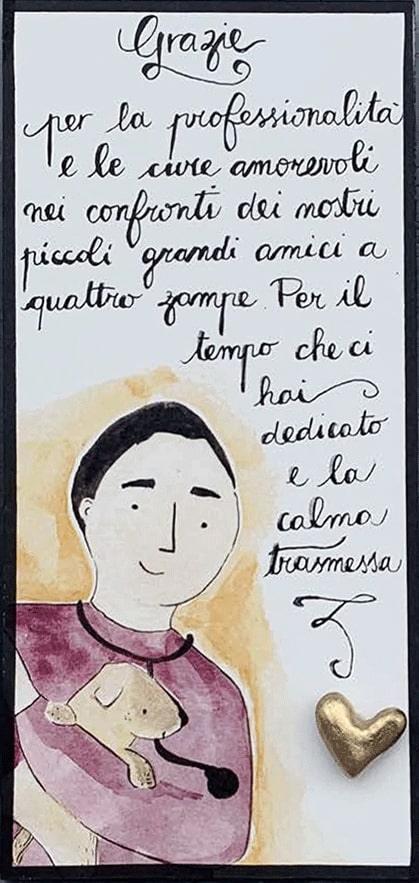 Grazie
per la professionalità
e le cure amorevoli
nei confronti dei nostri
piccoli grandi amici a
quattro zampe. Per il
tempo che ci
hai
dedicato
e la
calma
trasmessa